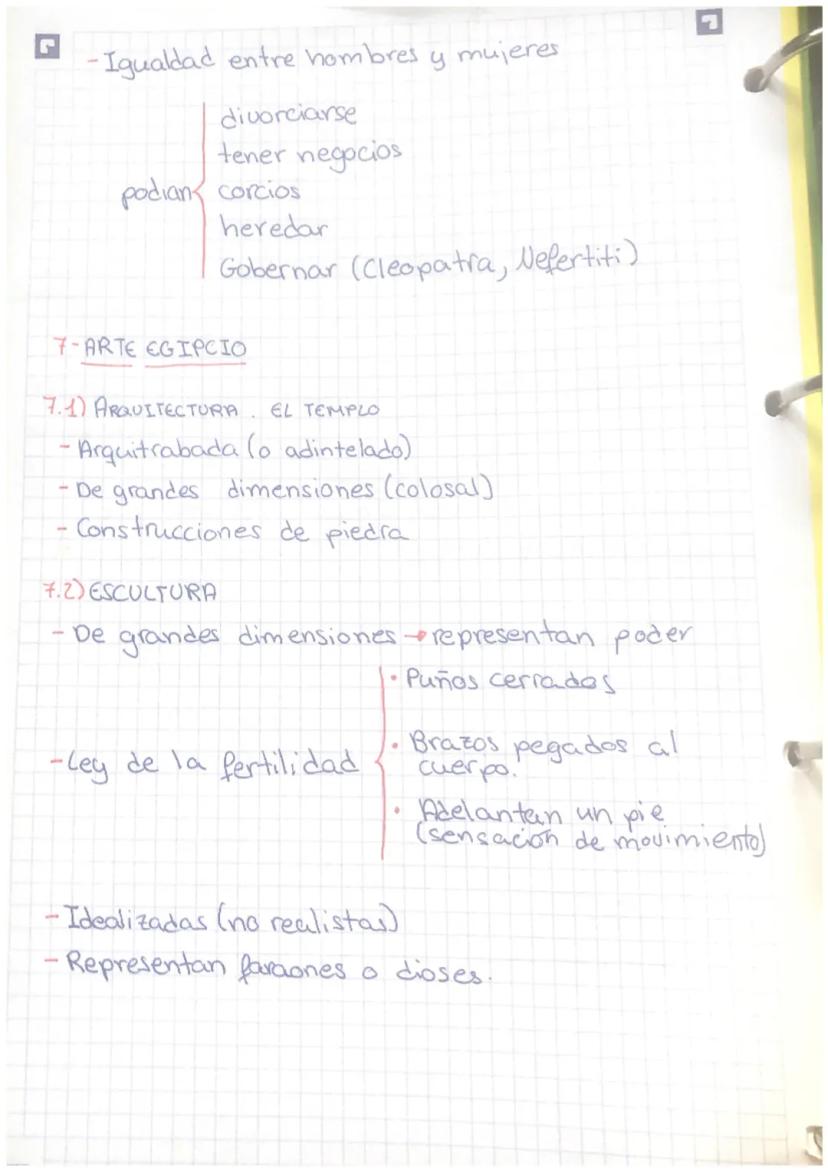 - Igualdad entre hombres y mujeres
divorciarse
tener negocios
podian corcios
heredar
Gobernar (Cleopatra, Nefertiti)
7- ARTE EGIPCIO
7.1) ARQUITECTURA. EL TEMPLO
- Arquitrabada (o adintelado)
- De grandes dimensiones (colosal)
- Construcciones de piedra
7.2) ESCULTURA
- De grandes dimensiones → representan poder
• Puños cerrados
- Ley de la fertilidad
• Brazos pegados al
cuerpo.
• Adelantan un pie
(sensación de movimiento)
- Idealizadas (no realistas)
- Representan faraones o dioses.